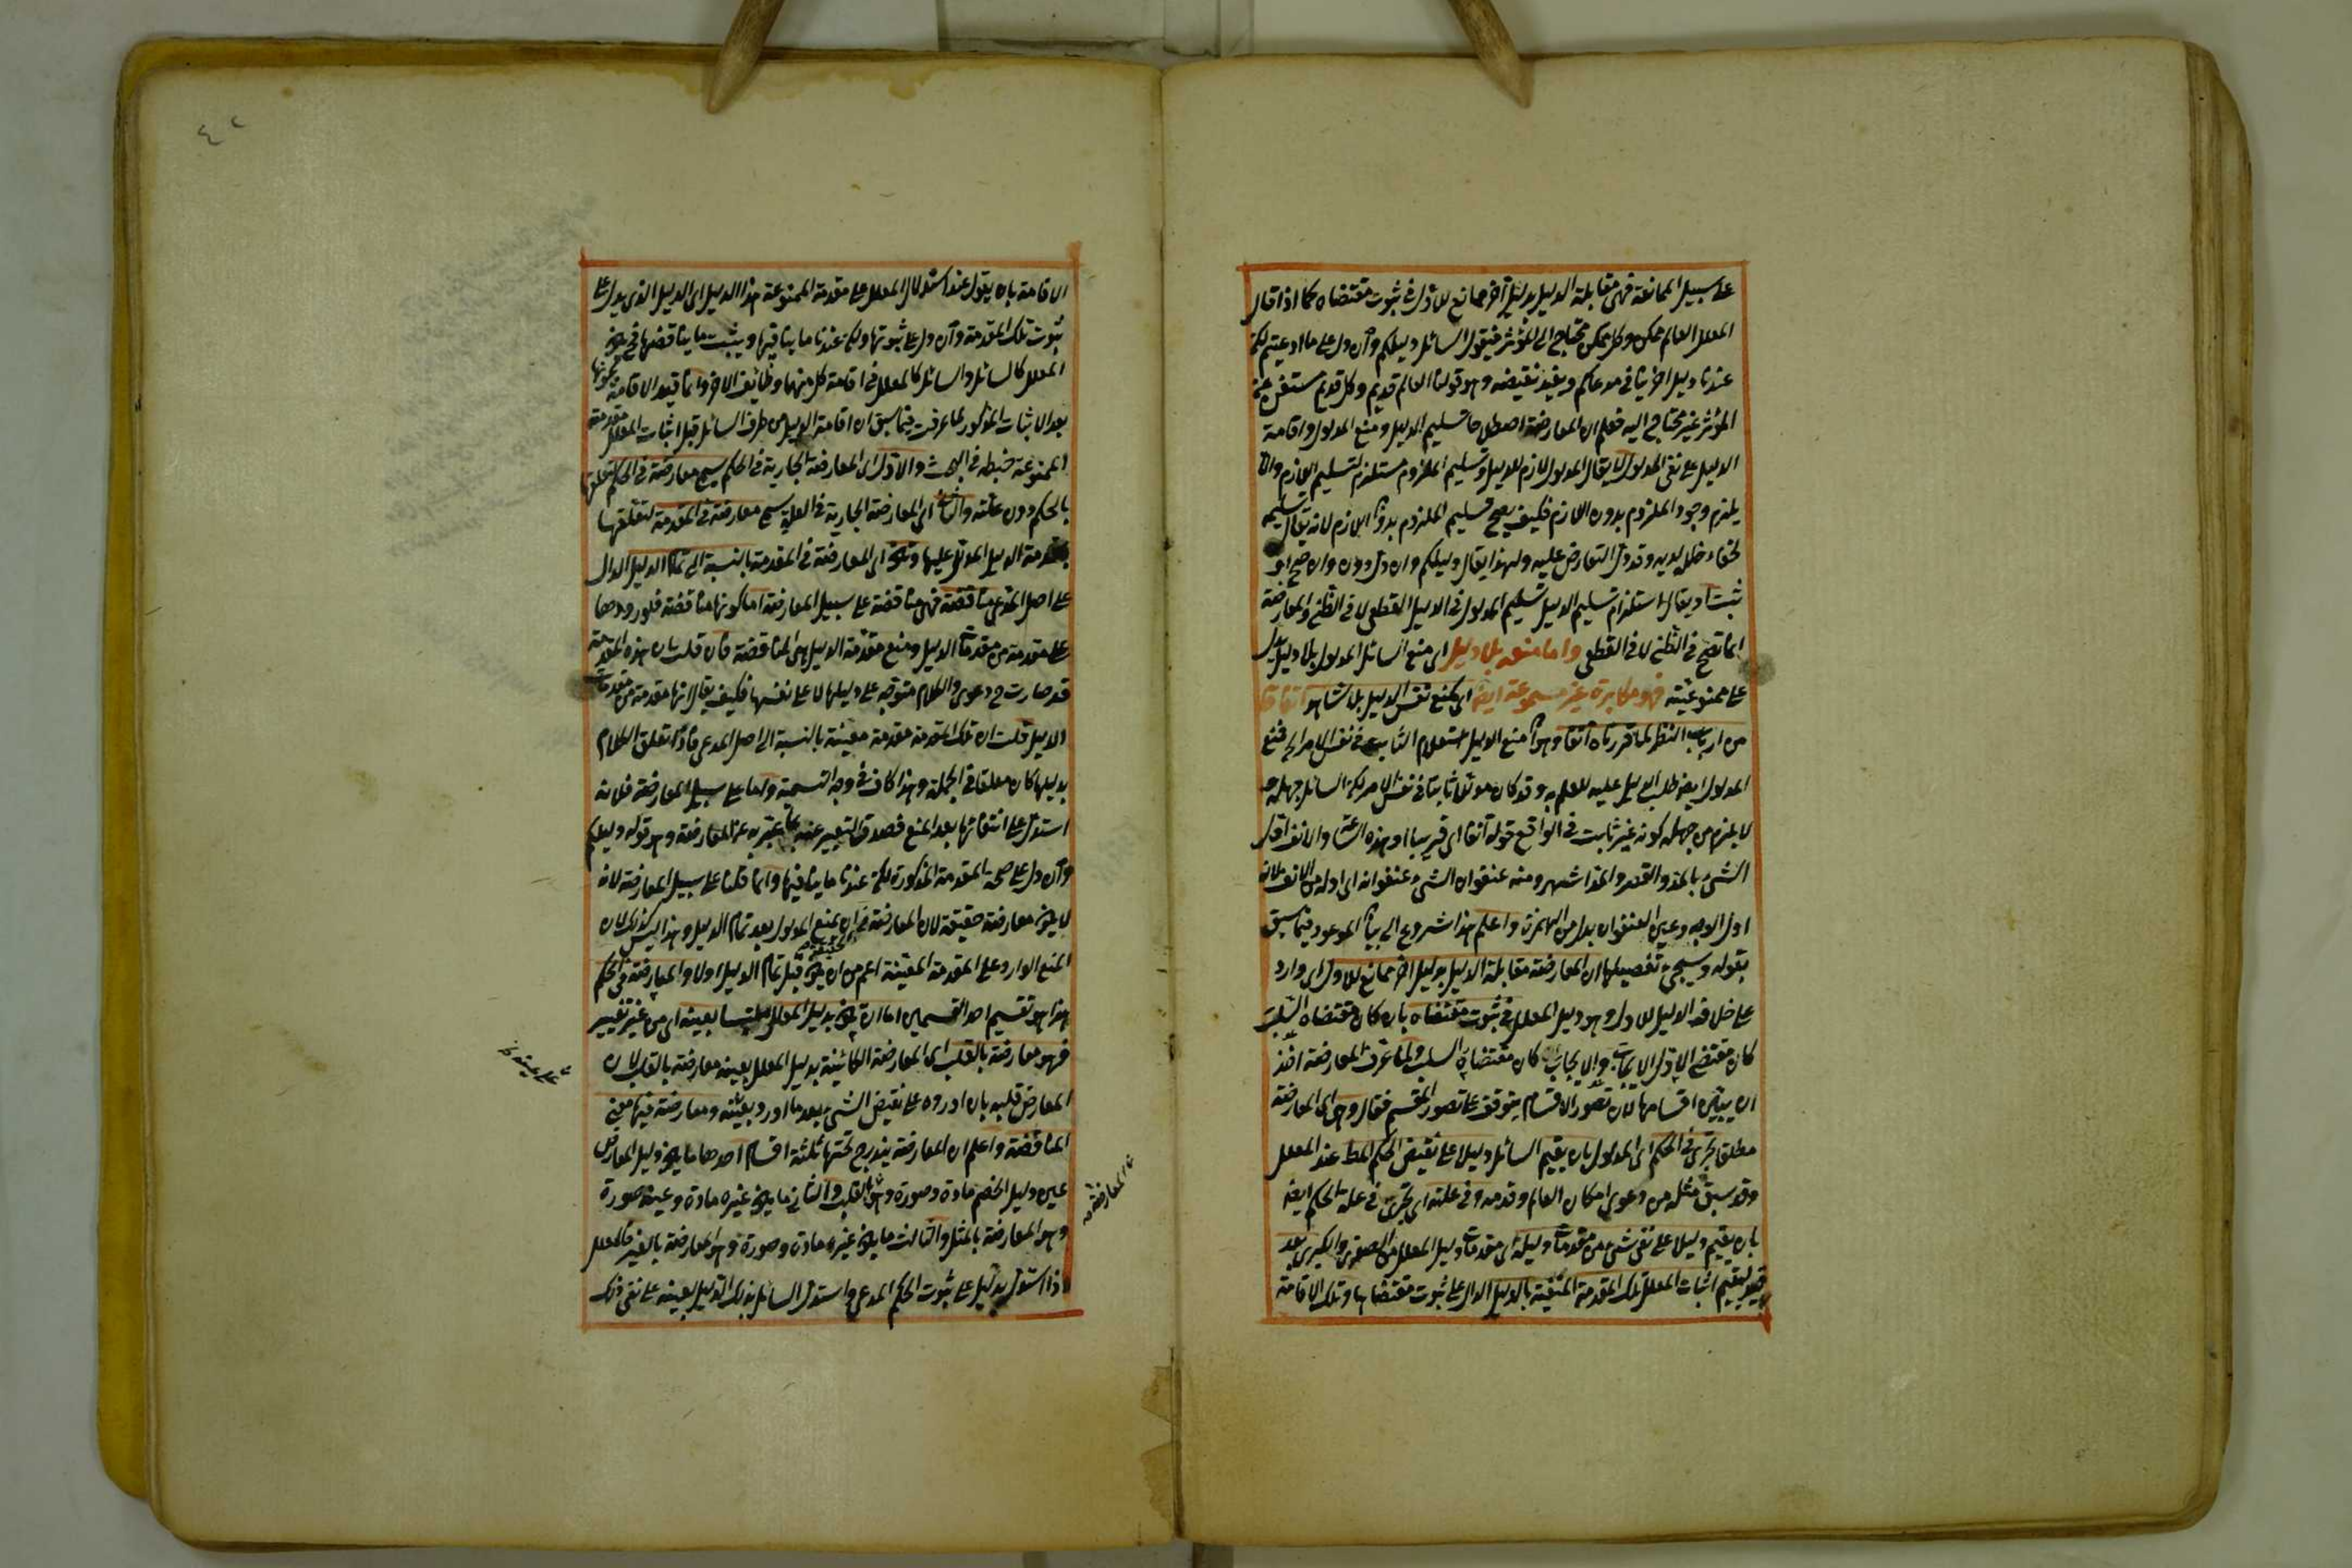 على سبيل الممانعة فهى مقابلة الدليل بدليل آخر ممانع للاول فى ثبوت مقتضاه كما اذا قال
المعلل العالم ممكن وكل ممكن محتاج الى المؤثر فيقول السائل دليلكم وان دل على ما ادعيتم لكن
عندنا دليل اخر ينافى مدعاكم ويفيد نقيضه وهو قولنا العالم قديم وكل قديم مستغن عن
المؤثر غير محتاج اليه فعلم ان المعارضة اصطلاحا تسليم الدليل ومنع المدلول واقامة
الدليل على نفى المدلول لا يقال المدلول لازم للدليل وتسليم الملزوم مستلزم لتسليم اللازم والا
يلزم وجود الملزوم بدون اللازم فكيف يصح تسليم الملزوم بدون اللازم لانه يقال تسليمه
لخفاء خلل لديه وقد دل التعارض عليه ولهذا يقال دليلكم وان دل دون وان صح او
ثبت او يقال استلزام تسليم الدليل تسليم المدلول فى الدليل القطعى لا فى الظنى والمعارضة
انما تصح فى الظنى لا فى القطعى واما منعه بلا دليل اى منع السائل المدلول بلا دليل يدل
على ممنوعيته فهو مكابرة غير مسموعة ايضا اى كمنع نفس الدليل بلا شاهد اتفاقا
من ارباب النظر لما قررناه آنفا وهو ان منع الدليل استعلام الثابت فى نفس الامر الخ فمنع
المدلول ايضا طلب الدليل عليه للعلم به وقد كان مدللا ثابتا فى نفس الامر لكن السائل جهله و
لا يلزم من جهله كونه غير ثابت فى الواقع قوله آنفا اى قريبا او هذه الساعة والآنف اول
الشئ بالمد والقصر والمد اشهر ومنه عنفوان الشئ عنفوانه اى اوله من الانف لانه
اول الوجه وعين العنفوان بدل من الهمزة واعلم هذا شروع الى بيان الموعود فيما سبق
بقوله وسيجئ تفصيلها ان المعارضة مقابلة الدليل بدليل اخر ممانع للاول اى وارد
على خلاف الدليل الاول وهو دليل المعلل فى ثبوت مقتضاه بان كان مقتضاه السلب
كان مقتضى الاول الايجاب والايجاب كان مقتضاه السلب ولما عرف المعارضة اخذ
ان يبين اقسامها لان تصور الاقسام يتوقف على تصور المقسم فقال وهى اى المعارضة
مطلقا تجرى فى الحكم اى المدلول بان يقيم السائل دليلا على نقيض الحكم المط عند المعلل
وقد سبق مثله من دعوى امكان العالم وقدمه وفى علته اى تجرى فى علة الحكم ايضا
بان يقيم دليلا على نفى شئ من مقدمات دليله اى مقدمات دليل المعلل من الصغرى والكبرى بعد
اثبات المعلل تلك المقدمة المنفية بالدليل الدال على ثبوت مقتضاها وتلك الاقامة
٤٢
الاقامة بان يقول عند استدلال المعلل على مقدمة الممنوعة هذا الدليل اى الدليل الذى يدل على
ثبوت تلك المقدمة وان دل على ثبوتها ولكن عندنا ما ينافيها ويثبت ما يناقضها فح يكون
المعلل كالسائل والسائل كالمعلل فى اقامة كل منهما وظائف الاخر وانما قيد الاقامة بكونها
بعد الاثبات المذكور لما عرفت فيما سبق ان اقامة الدليل من طرف السائل قبل اثبات المعلل مقدمة
الممنوعة خبطه فى البحث والاول اى المعارضة الجارية فى الحكم يسمى معارضة فى الحكم لتعلقها
بالحكم دون علته والثانى اى المعارضة الجارية فى العلة يسمى معارضة فى المقدمة لتعلقها
بمقدمة الدليل المدلل عليها وتكون اى المعارضة فى المقدمة بالنسبة الى تمام الدليل الدال
على اصل المدعى مناقضة فهى مناقضة على سبيل المعارضة اما كونها مناقضة فلورودها
على مقدمة من مقدمات الدليل ومنع مقدمة الدليل هى المناقضة فان قلت بان هذه المقدمة
قد صارت ح دعوى والكلام متوجه على دليلها لا على نفسها فكيف يقال انها مقدمة من مقدمات
الدليل قلت ان تلك المقدمة مقدمة معينة بالنسبة الى اصل المدعى فاذا تعلق الكلام
بدليلها كان معلقا فى الجملة وهذا كاف فى وجه التسمية واما على سبيل المعارضة فلانه
استدل على انتفائها بعد المنع فصدق التعبير عنه بما عبر به عن المعارضة وهو قوله دليلكم
وان دل على صحة المقدمة المذكورة لكن عندنا ما ينافيها وانما قلنا على سبيل المعارضة لانه
لا يكون معارضة حقيقة لان المعارضة ان يمنع المدلول بعد تمام الدليل وهذا ليس كذلك لان
المنع الوارد على المقدمة المعينة اعم من ان يكون قبل تمام الدليل اولا والمعارضة فى الحكم
هذا هو تقسيم احد القسمين اما ان تكون بدليل المعلل ملتبسا بعينه اى من غير تغيير
فهو معارضة بالقلب اى المعارضة الكائنة بدليل المعلل بعينه معارضة بالقلب لان
المعارض قلبه بان اورده على نقيض الشئ بعد ما اورد بعينه ومعارضة فيها معنى
المناقضة واعلم ان المعارضة يندرج تحتها ثلثة اقسام احدها ما يكون دليل المعارض
عين دليل الخصم مادة وصورة وهو القلب والثانى ما يكون غيره مادة وعينه صورة
وهو المعارضة بالمثل والثالث ما يكون غيره مادة وصورة وهو المعارضة بالغير فالمعلل
اذا استدل بدليل على ثبوت الحكم المدعى واستدل السائل بذلك الدليل بعينه على نفى ذلك
المعارضة